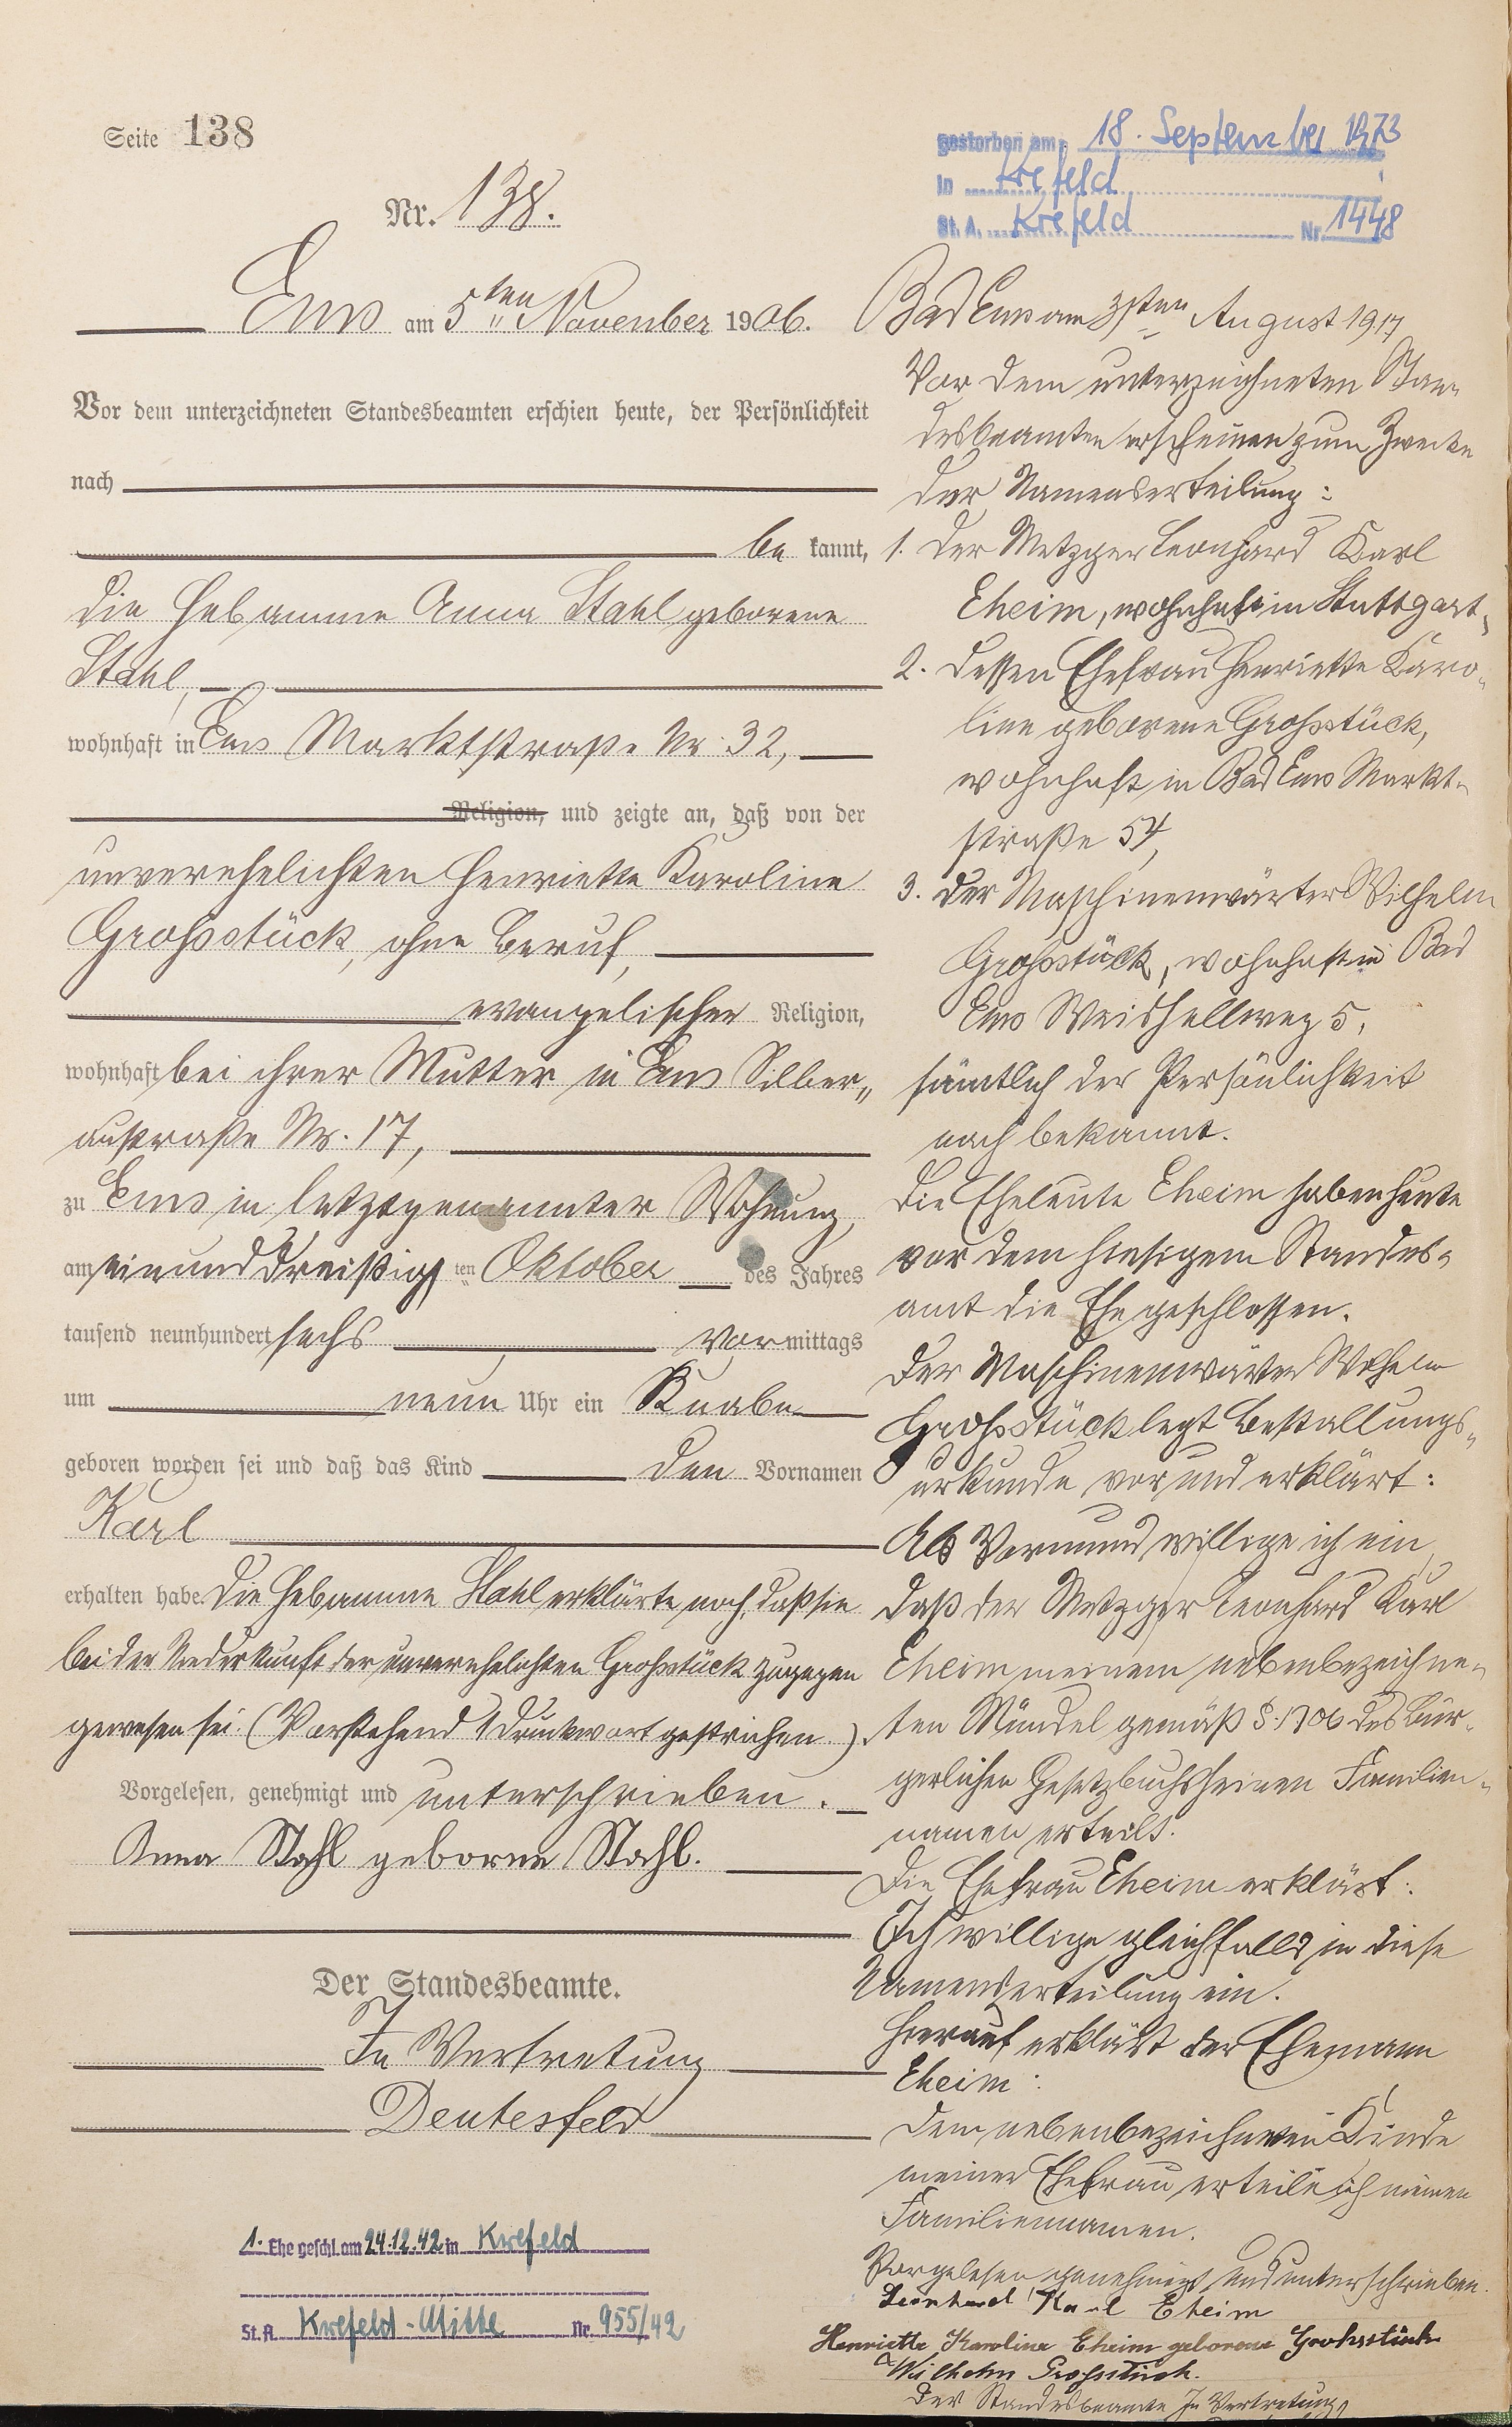 Seite 138
Nr. 138.
Ems am 5ten November 1906.
Vor dem unterzeichneten Standesbeamten erschien heute, der Persönlichkeit
nach
be kannt,
die Hebamme Anna Stahl geborene
Stahl,
wohnhaft in Ems Marktstraße Nr. 32,
Religion, und zeigte an, daß von der
unverehelichten Henriette Karoline
Großstück, ohne Beruf,
evangelischer Religion,
wohnhaft bei ihrer Mutter in Ems Silber„
austraße Nr. 17,
zu Ems in letztgenannter Wohnung,
am einunddreißigsten Oktober des Jahres
tausend neunhundert sechs vormittags
um neun Uhr ein Knabe
geboren worden sei und daß das Kind den Vornamen
Karl
erhalten habe. Die Hebamme Stahl erklärte noch, daß sie
bei der Niederkunft der unverehelichten Großstück zugegen
gewesen sei. (Vorstehend 1 Druckwort gestrichen.)
Vorgelesen, genehmigt und unterschrieben.
Anna Stahl geborne Stahl.
Der Standesbeamte.
In Vertretung
Deutesfeld
1. Ehe geschl. am 24.12.42 in Krefeld
St. A. Krefeld-Mitte Nr. 955/42
gestorben am 18. September 1973
in Krefeld
St. A. Krefeld Nr. 1448
Bad Ems am 31sten August 1917
Vor dem unterzeichneten Stan„
desbeamten erscheinen zum Zwecke
der Namenserteilung:
1. der Metzger Leonhard Karl
Eheim, wohnhaft in Stuttgart,
2. dessen Ehefrau Henriette Karo„
line geborene Großstück,
wohnhaft in Bad Ems Markt„
straße 54,
3. der Maschinenwärter Wilhelm
Großstück, wohnhaft in Bad
Ems Weishellweg 5,
sämtlich der Persönlichkeit
nach bekannt.
Die Eheleute Eheim haben heute
vor dem hiesigem Standes„
amt die Ehe geschlossen.
Der Maschinenwärter Wilhelm
Großstück legt Bestallungs„
urkunde vor und erklärt:
Als Vormund willige ich ein,
daß der Metzger Leonhard Karl
Eheim meinem nebenbezeichne„
ten Mündel gemäß §. 1706 des Bür„
gerlichen Gesetzbuchs seinen Familien„
namen erteilt.
Die Ehefrau Eheim erklärt:
Ich willige gleichfalls in diese
Namenserteilung ein.
Hierauf erklärt der Ehemann
Eheim:
Dem nebenbezeichneten Kinde
meiner Ehefrau erteile ich meinen
Familiennamen.
Vorgelesen genehmigt und unterschrieben.
Leonhard Karl Eheim
Henriette Karoline Eheim geborene Grohsstück
Wilhelm Grossstück.
Der Standesbeamte In Vertretung